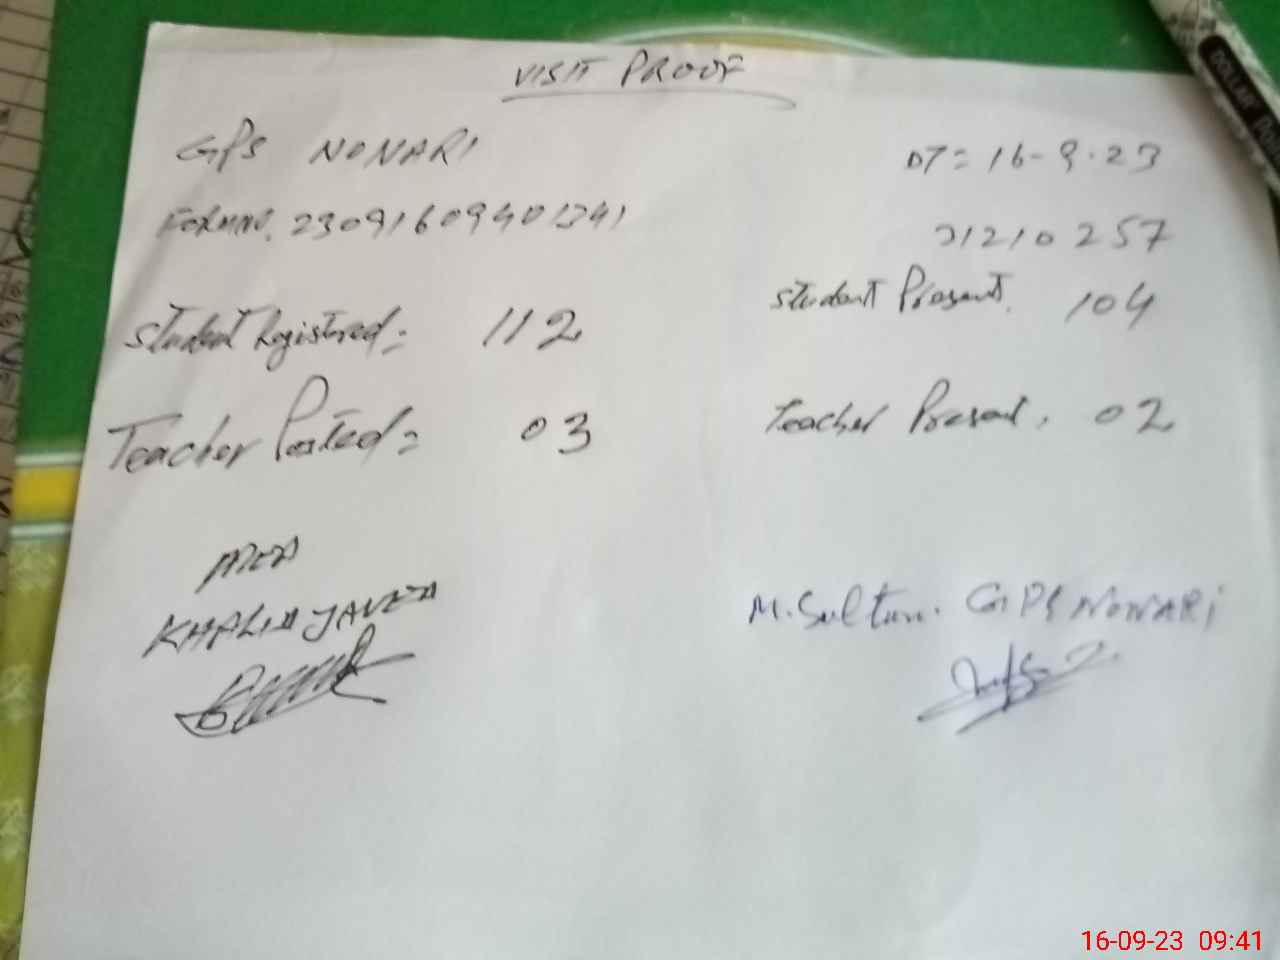 VISIT PROOF
GPS NONARI
DT = 16-9-23
FORM NO. 23091609401341
31210257
Student Registered = 112
Student Present. 104
Teacher Posted = 03
Teacher Present. 02
MEA
KHALID JAVED
M. Sultan. GPS NONARI
DOLLAR
16-09-23 09:41